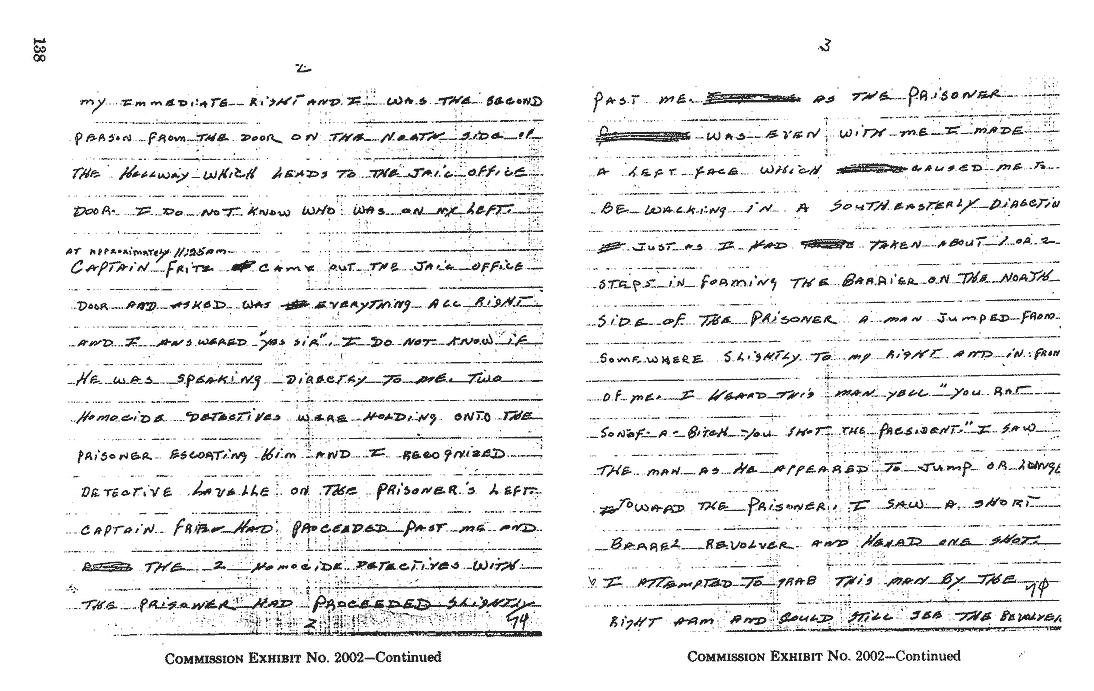 138
2
my IMMEDIATE RIGHT AND I WAS THE SECOND
PERSON FROM THE DOOR ON THE NORTH SIDE OF
THE HALLWAY WHICH LEADS TO THE JAIL OFFICE
DOOR. I DO NOT KNOW WHO WAS ON MY LEFT.
AT APPROXIMATELY 11:25am
CAPTAIN FRITZ CAME OUT THE JAIL OFFICE
DOOR AND ASKED WAS EVERYTHING ALL RIGHT
AND I ANSWERED "yes SIR". I DO NOT KNOW IF
HE WAS SPEAKING DIRECTLY TO ME. TWO
HOMOCIDE DETECTIVES WERE HOLDING ONTO THE
PRISONER ESCORTING HIM AND I RECOGNIZED
DETECTIVE LAVELLE ON THE PRISONER'S LEFT.
CAPTAIN FRITZ HAD PROCEEDED PAST ME AND
THE 2 HOMOCIDE DETECTIVES WITH
THE PRISONER HAD PROCEEDED SLIGHTLY
2
COMMISSION EXHIBIT NO. 2002—Continued
3
PAST ME. AS THE PRISONER
WAS EVEN WITH ME I MADE
A LEFT FACE WHICH CAUSED ME TO
BE WALKING IN A SOUTHEASTERLY DIRECTIN
JUST AS I HAD TAKEN ABOUT 1 OR 2
STEPS IN FORMING THE BARRIER ON THE NORTH
SIDE OF THE PRISONER A MAN JUMPED FROM
SOMEWHERE SLIGHTLY TO my RIGHT AND IN FRON
OF ME. I HEARD THIS MAN YELL "YOU RAT
SON-OF-A-BITCH YOU SHOT THE PRESIDENT." I SAW
THE MAN AS HE APPEARED TO JUMP OR LUNGE
TOWARD THE PRISONER. I SAW A SHORT
BARREL REVOLVER AND HEARD ONE SHOT.
I ATTEMPTED TO GRAB THIS MAN BY THE
RIGHT ARM AND COULD STILL SEE THE REVOLVER
COMMISSION EXHIBIT NO. 2002—Continued